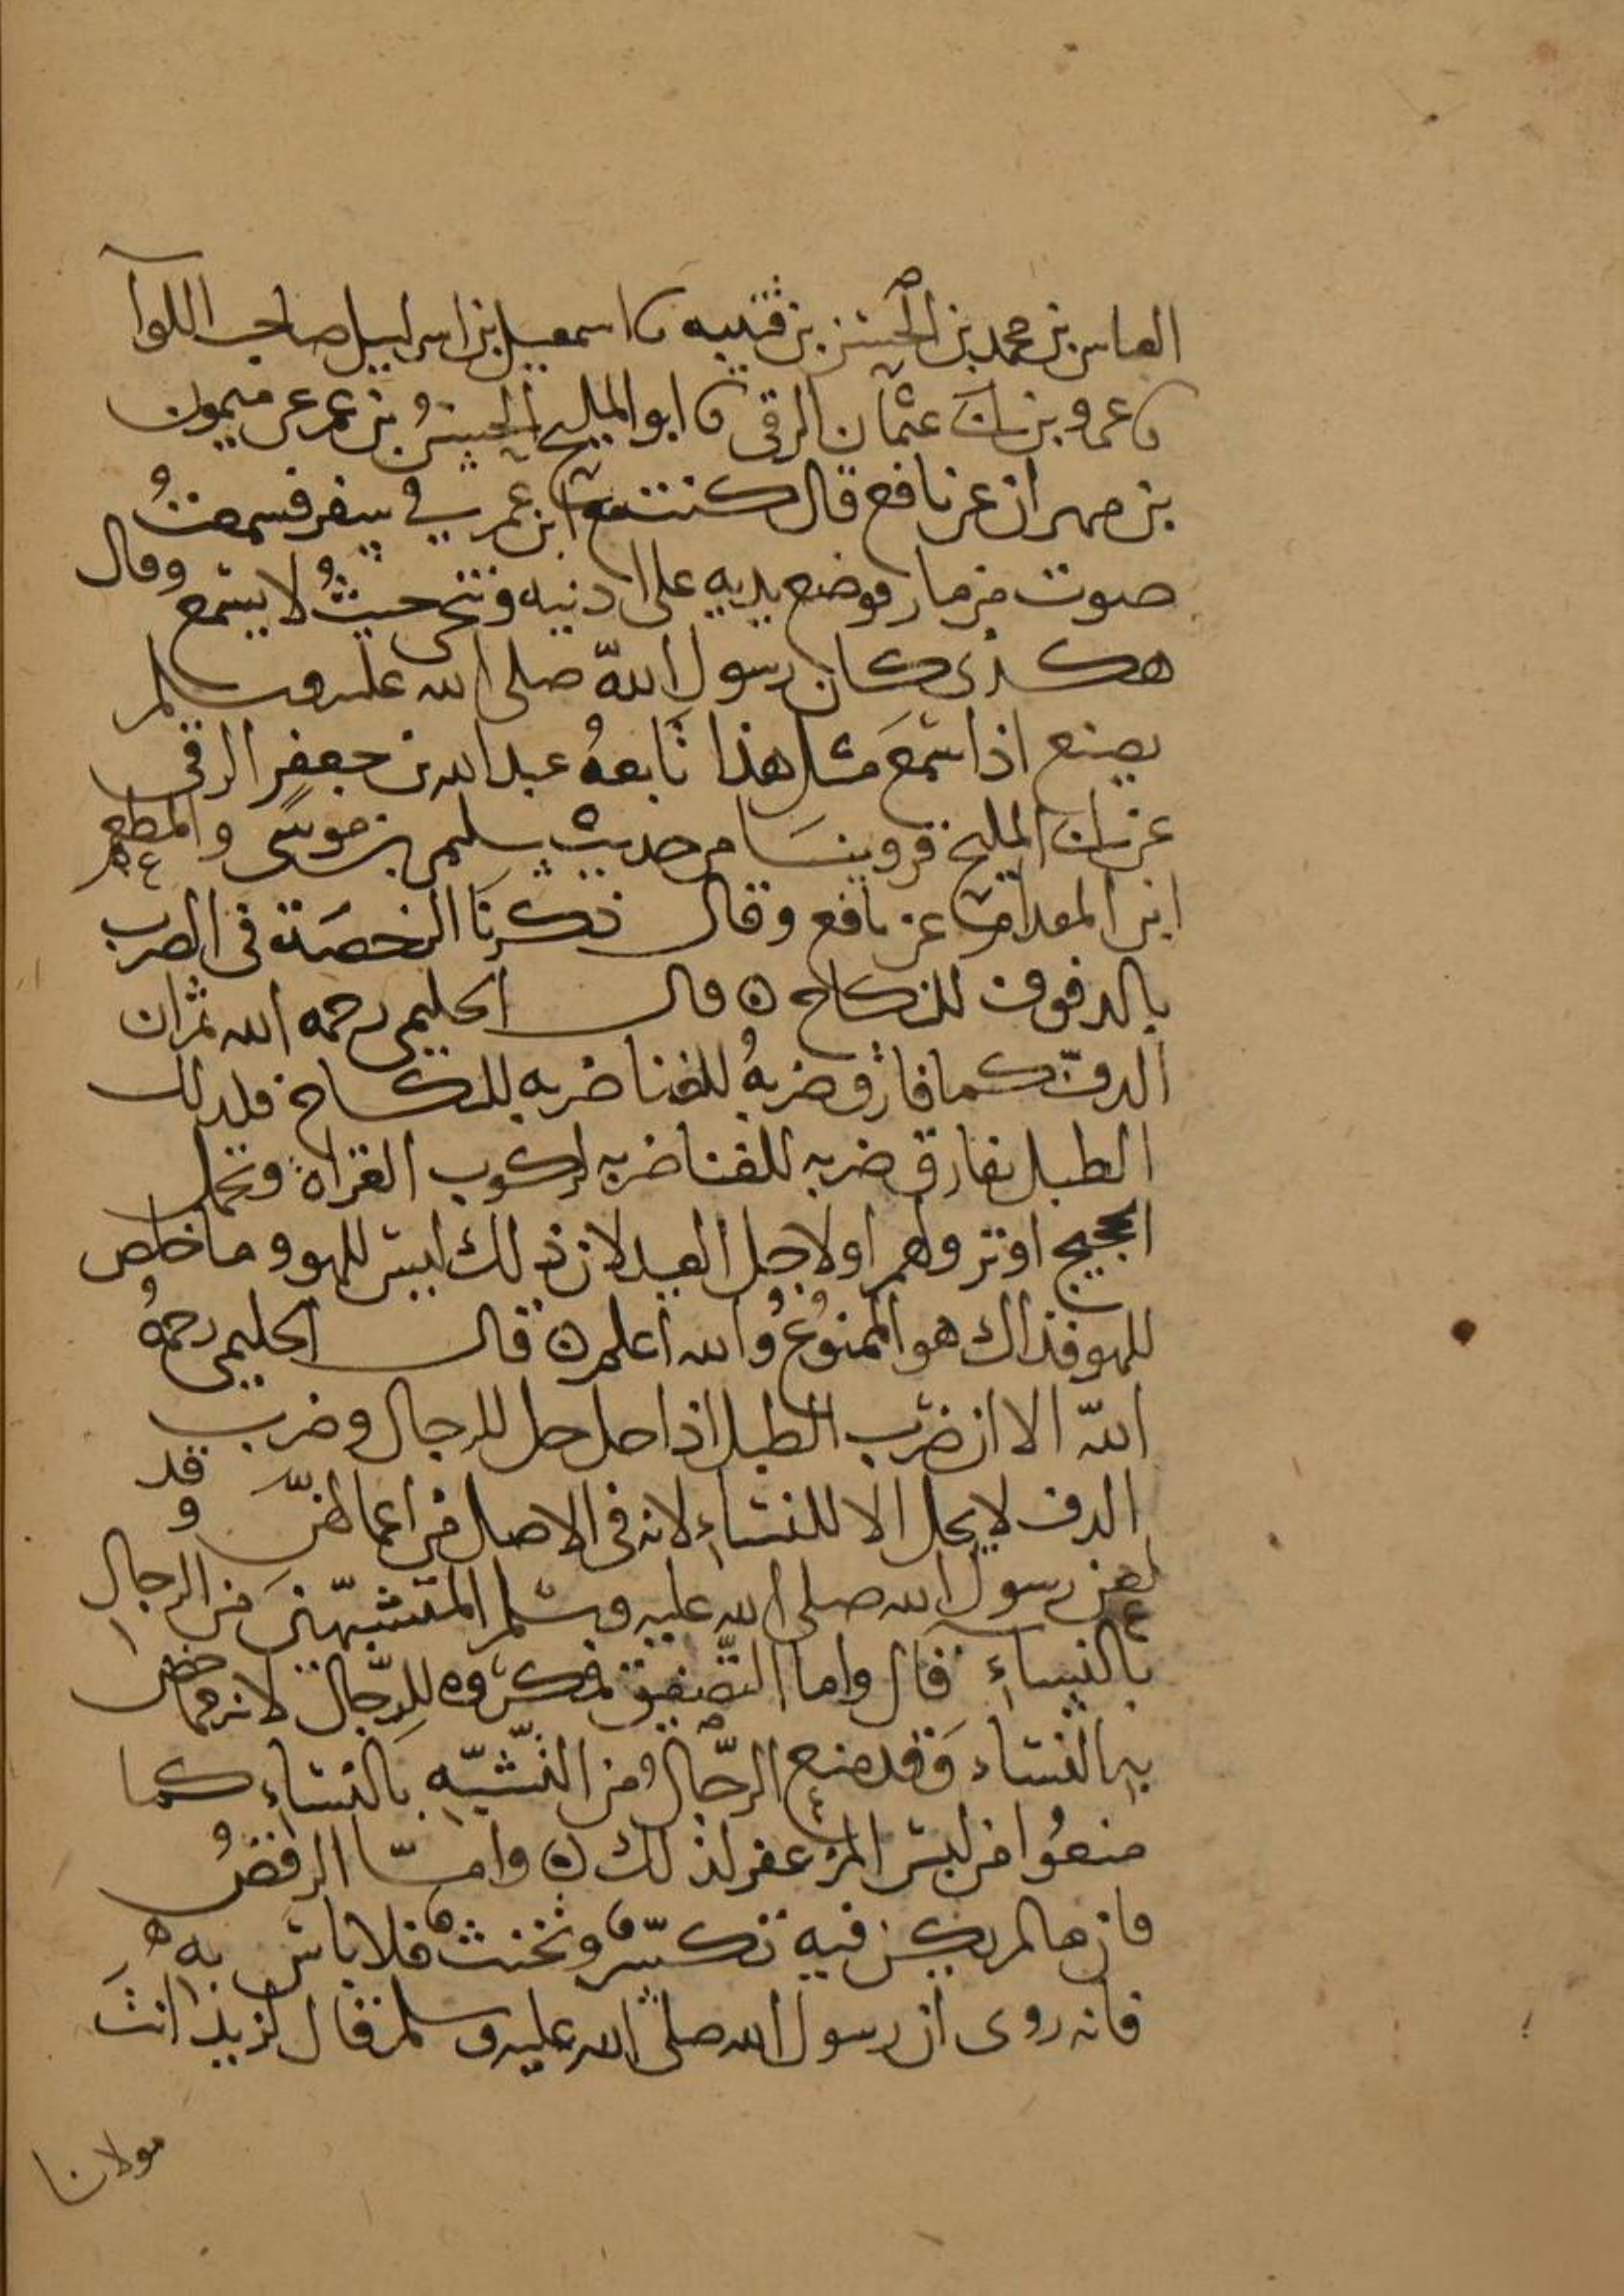 العباس بن محمد بن الحسن بن قتيبه نا اسمعيل بن اسراىيل صاحب اللوا
نا عمرو بن ابى عثمان الرقى نا ابو المليح الحسنُ بن عمر عن ميمون
بن مهران عن نافع قال كنت مع ابن عمر في سفر فسمعتُ
صوت مزمار فوضع يديه على اذنيه وتنحى حيثُ لا يسمع وقال
هكذى كان رسول اللهّ صلى الله عليه وسلم
يصنع اذا سمعَ مثل هذا تابعهُ عبد الله بن جعفر الرقى
عن ابى المليح وروينا من حديث سليمن بن موسَى والمطعم
ابن المقدام عن نافع وقال ذكرنَا الرخصَة فى الضرب
بالدفوف للنكاح ٥ قال الحليمى رحمه الله ثم ان
الدفّ كما فارق ضربهُ للغنا ضربه للنكاح فلذلك
الطبل يفارق ضربه للغنا ضربه لركوب الغزاة وتحمل
الحجيج او نزولهم او لاجل العيد لان ذلك ليس للهو وما خلص
للهو فذاك هو الممنوُعُ والله اعلم ٥ قال الحليمى رحمهُ
اللهّ الا ان ضرب الطبل اذا حل حل للرجال وضرب
الدف لا يحل الا للنساءِ لانه فى الاصل من اعمالهنّ وقد
لعن رسول الله صلى الله عليه وسلم المتشبّهينَ من الرجال
بالنساءِ قال واما التصفيق فمكروه للرّجال لانه مما خص
به النساء وَقد منع الرّجالُ من التّشبّه بالنساءِ كما
منعُوا من لبس المزعفر لذلك ٥ وامّا الرقصُ
فان ما لم يكن فيه تكسّر وتخنث فلا باس به
فانه روى ان رسول الله صلى الله عليه وسلم قال لزيد انتَ
مولانا